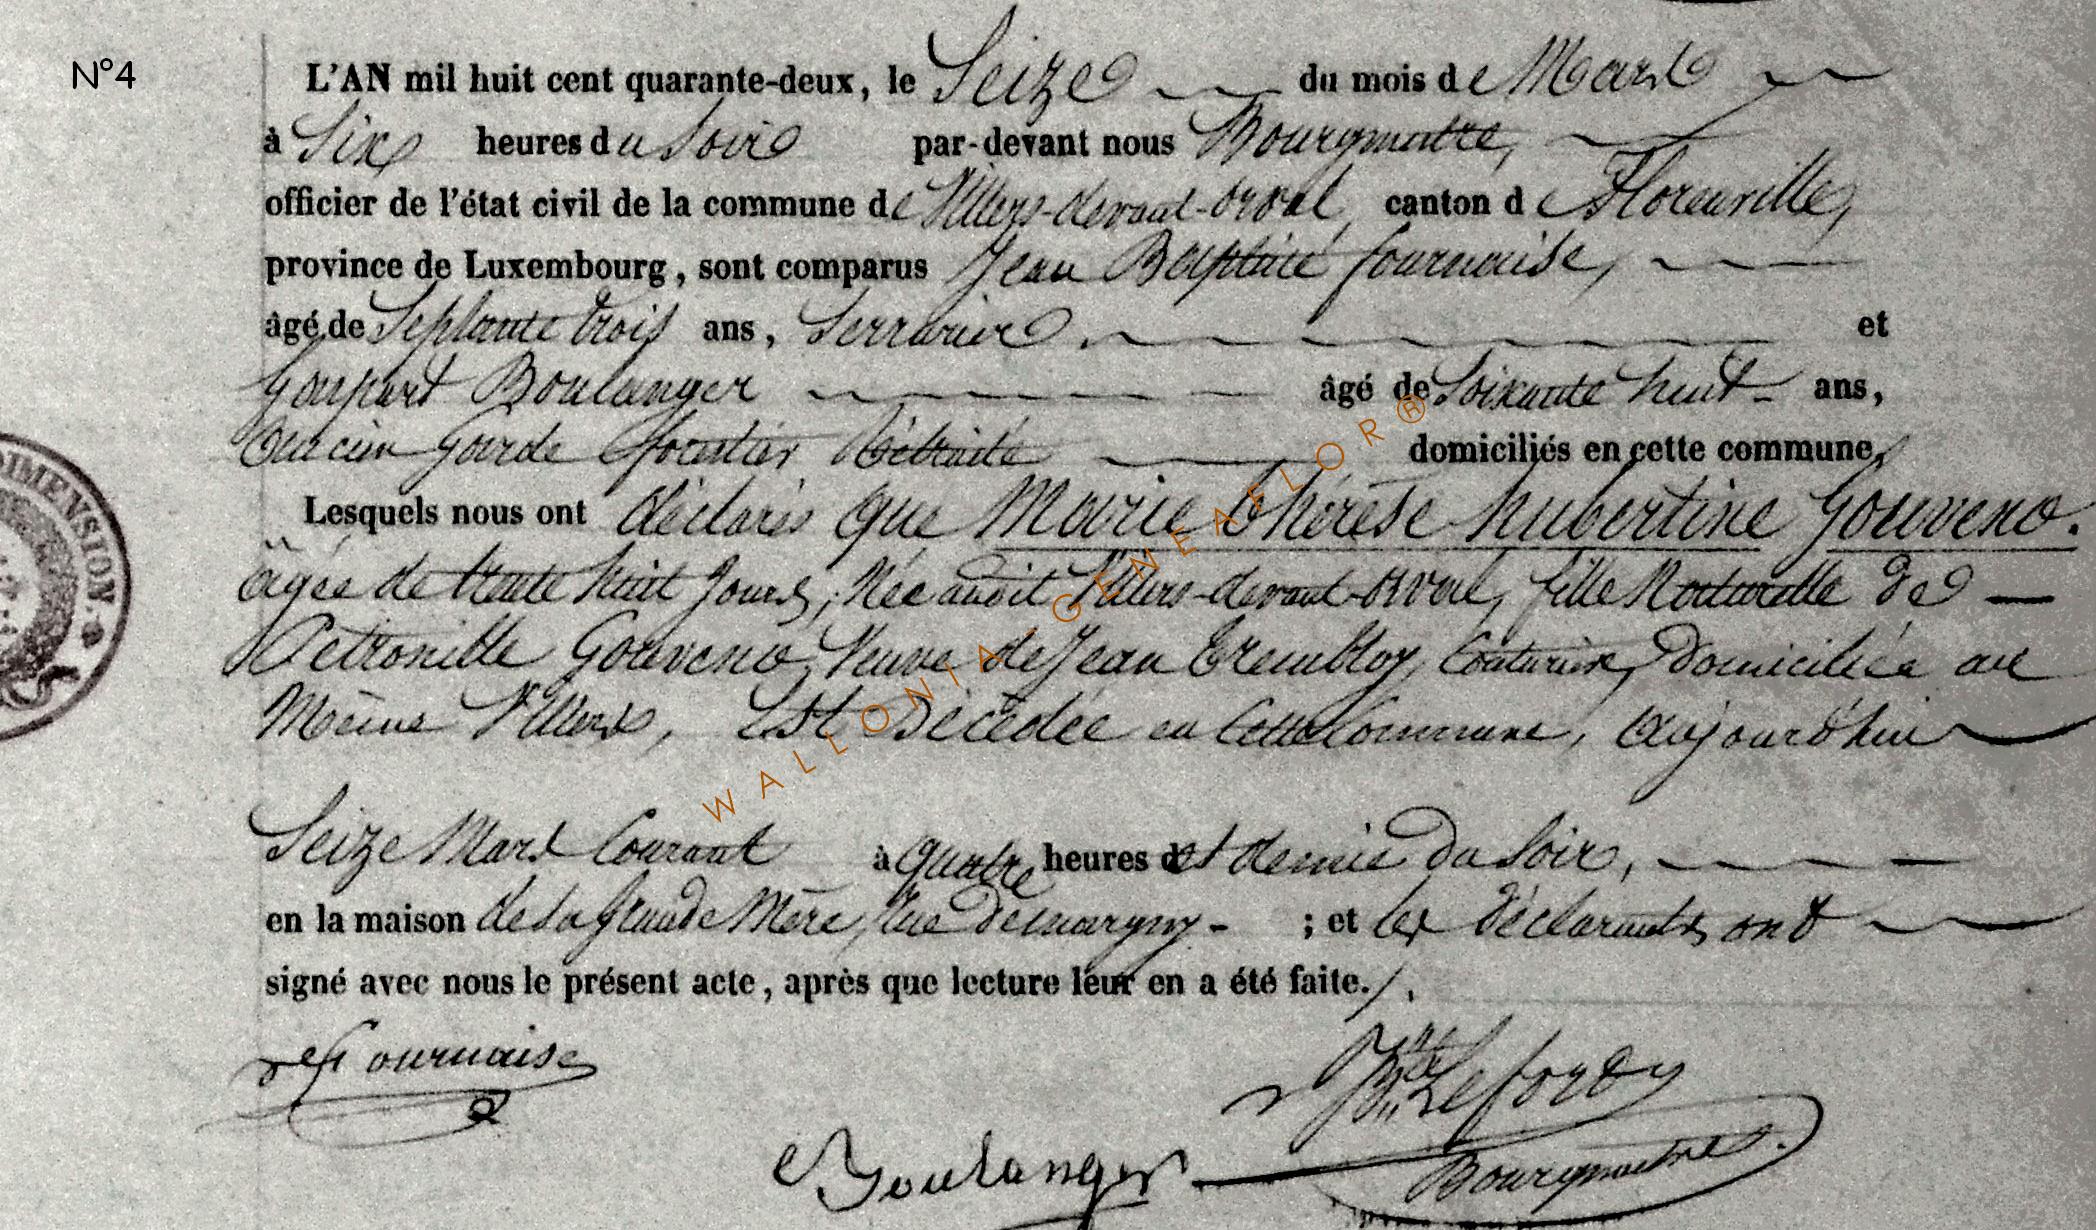 N°4
L'AN mil huit cent quarante-deux, le Seize du mois de Mars
à Six heures du Soir par-devant nous Bourgmestre,
officier de l'état civil de la commune de Villers-devant-orval, canton de Florenville,
province de Luxembourg, sont comparus Jean Baptiste fournaise,
âgé de Septante trois ans, Serrurier, et
Gaspart Boulanger âgé de Soixante huit ans,
ancien garde forestier Rétraité domiciliés en cette commune,
Lesquels nous ont déclarés que Marie thérèse hubertine Gouverno.
agée de trente huit Jours, Née audit Villers-devant-orval, fille Naturelle de
Petronille Gouverno, Veuve de Jean Trembloy, Couturière, Domiciliée au
Même Villers, Est Décédée en Cette Commune, aujourd'hui
Seize Mars Courant à quatre heures et demie Du Soir,
en la maison de sa Grande Mère, Rue Demargny - ; et les Déclarants ont
signé avec nous le présent acte, après que lecture leur en a été faite./.
Fournaise
Lefordy
Boulanger
Bourgmestre.
DIMENSION.
WALLONIA-GENEAFLOR®